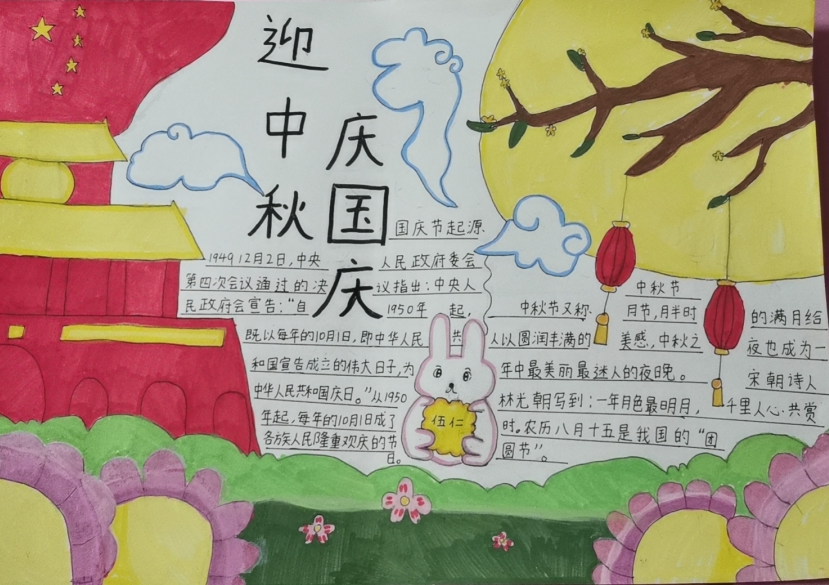 迎中秋
庆国庆
国庆节起源
1949 12月2日,中央人民政府委会
第四次会议通过的决议指出:中央人
民政府会宣告:“自1950年起,
既以每年的10月1日,即中华人民共
和国宣告成立的伟大日子,为
中华人民共和国庆日。”从1950
年起,每年的10月1日成了
各族人民隆重欢庆的节
日。
伍仁
中秋节
中秋节又称月节,月半时的满月给
人以圆润丰满的美感,中秋之夜也成为一
年中最美丽最迷人的夜晚。宋朝诗人
林光朝写到:一年月色最明月,千里人心共赏
时。农历八月十五是我国的“团
圆节”。